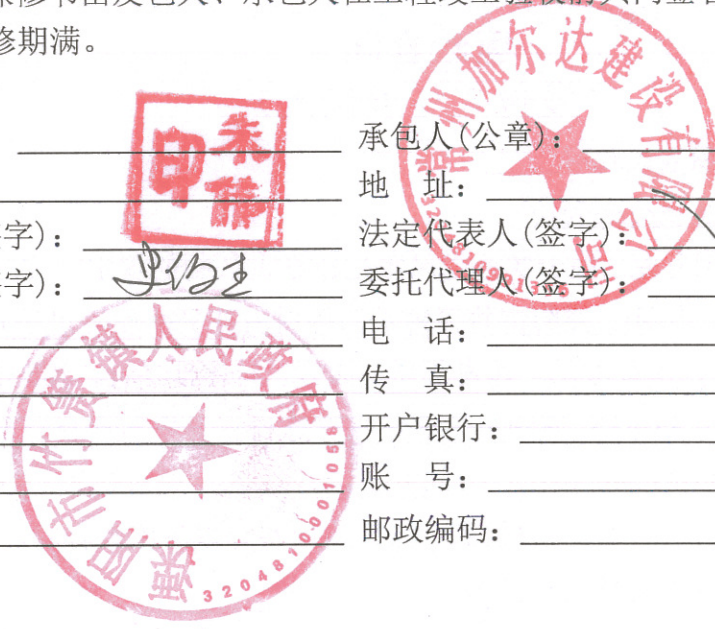 修期满。
承包人(公章):
地 址:
字): 法定代表人(签字):
字): 委托代理人(签字):
电 话:
传 真:
开户银行:
账 号:
邮政编码:
常州加尔达建设有限公司
溧阳市竹箦镇人民政府
3204810001058
朱
印